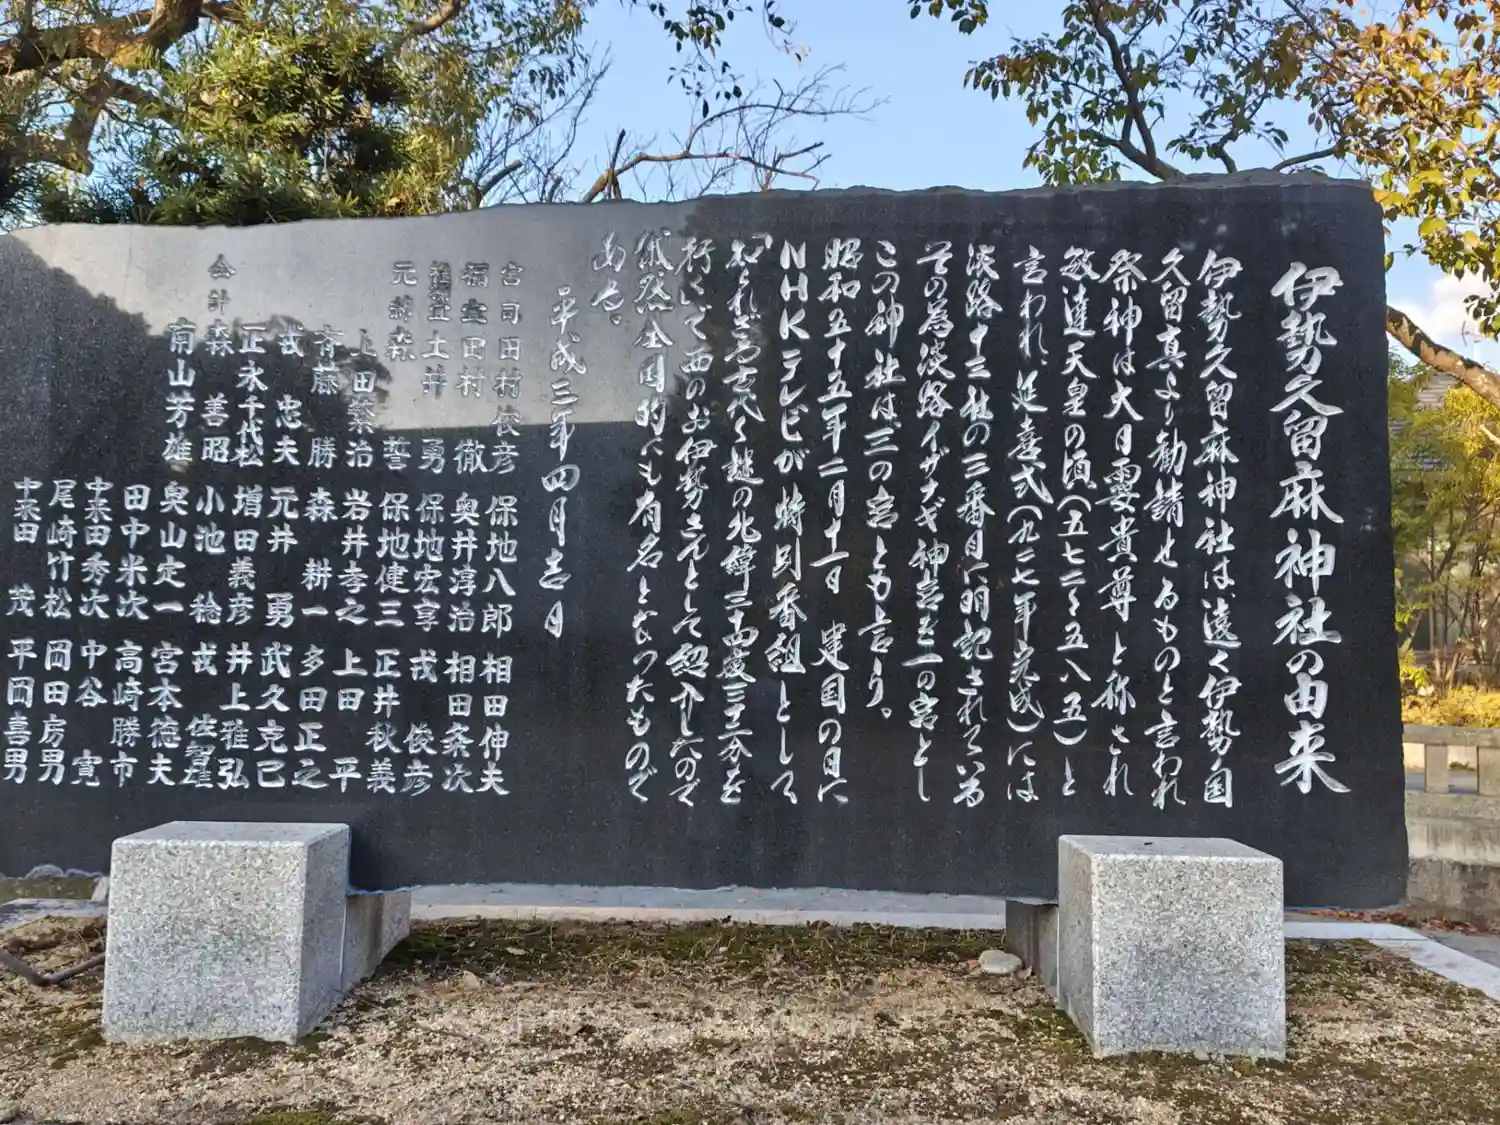 伊勢久留麻神社の由来
伊勢久留麻神社は、遠く伊勢国
久留真より勧請せるものと言われ
祭神は大日孁貴尊と称され
敏達天皇の頃(五七二〜五八五)と
言われ、延喜式(九二七年完成)には
淡路十三社の三番目に明記されている
その為淡路イザナギ神宮を一の宮とし
この神社は、三の宮とも言う。
昭和五十五年二月十一日 建国の日に
NHKテレビが特別番組として
「知られざる古代〜謎の北緯三十四度三十二分を
行く」で西のお伊勢さんとして紹介したので
俄然全国的にも有名となったもので
ある。
平成三年四月吉日
宮司 田村俊彦
福董 田村 徹
土井 勇
元 森 誓
上田繁治
斉藤 勝
戎 忠夫
正永千代松
会計 森 善昭
南山芳雄
保地八郎
奥井淳治
保地宏享
保地健三
岩井孝之
森 耕一
元井 勇
増田義彦
小池 稔
奥山定一
田中米次
中来田秀次
尾崎竹松
中来田 茂
相田伸夫
相田粂次
戎 俊彦
正井秋義
上田 平
多田正之
武久克己
井上雅弘
戎 佐智雄
宮本徳夫
高崎勝市
中谷 寛
岡田房男
平岡喜男